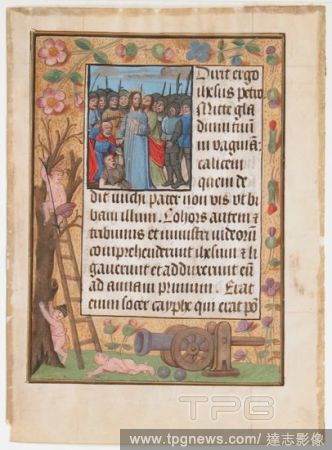 Dixit ergo
ihesus petro
Mitte gla
dium tuū
in vaginā
calicem
quem de
dit michi pater non vis vt bi
bam illum. Cohors autem et
tribunus et ministri iudeorū
comprehenderunt ihesum et li
gauerunt et adduxerunt eū
ad annam primum. Erat
enim socer cayphe qui erat pō
TPG
www.tpgnews.com/ 達志影像